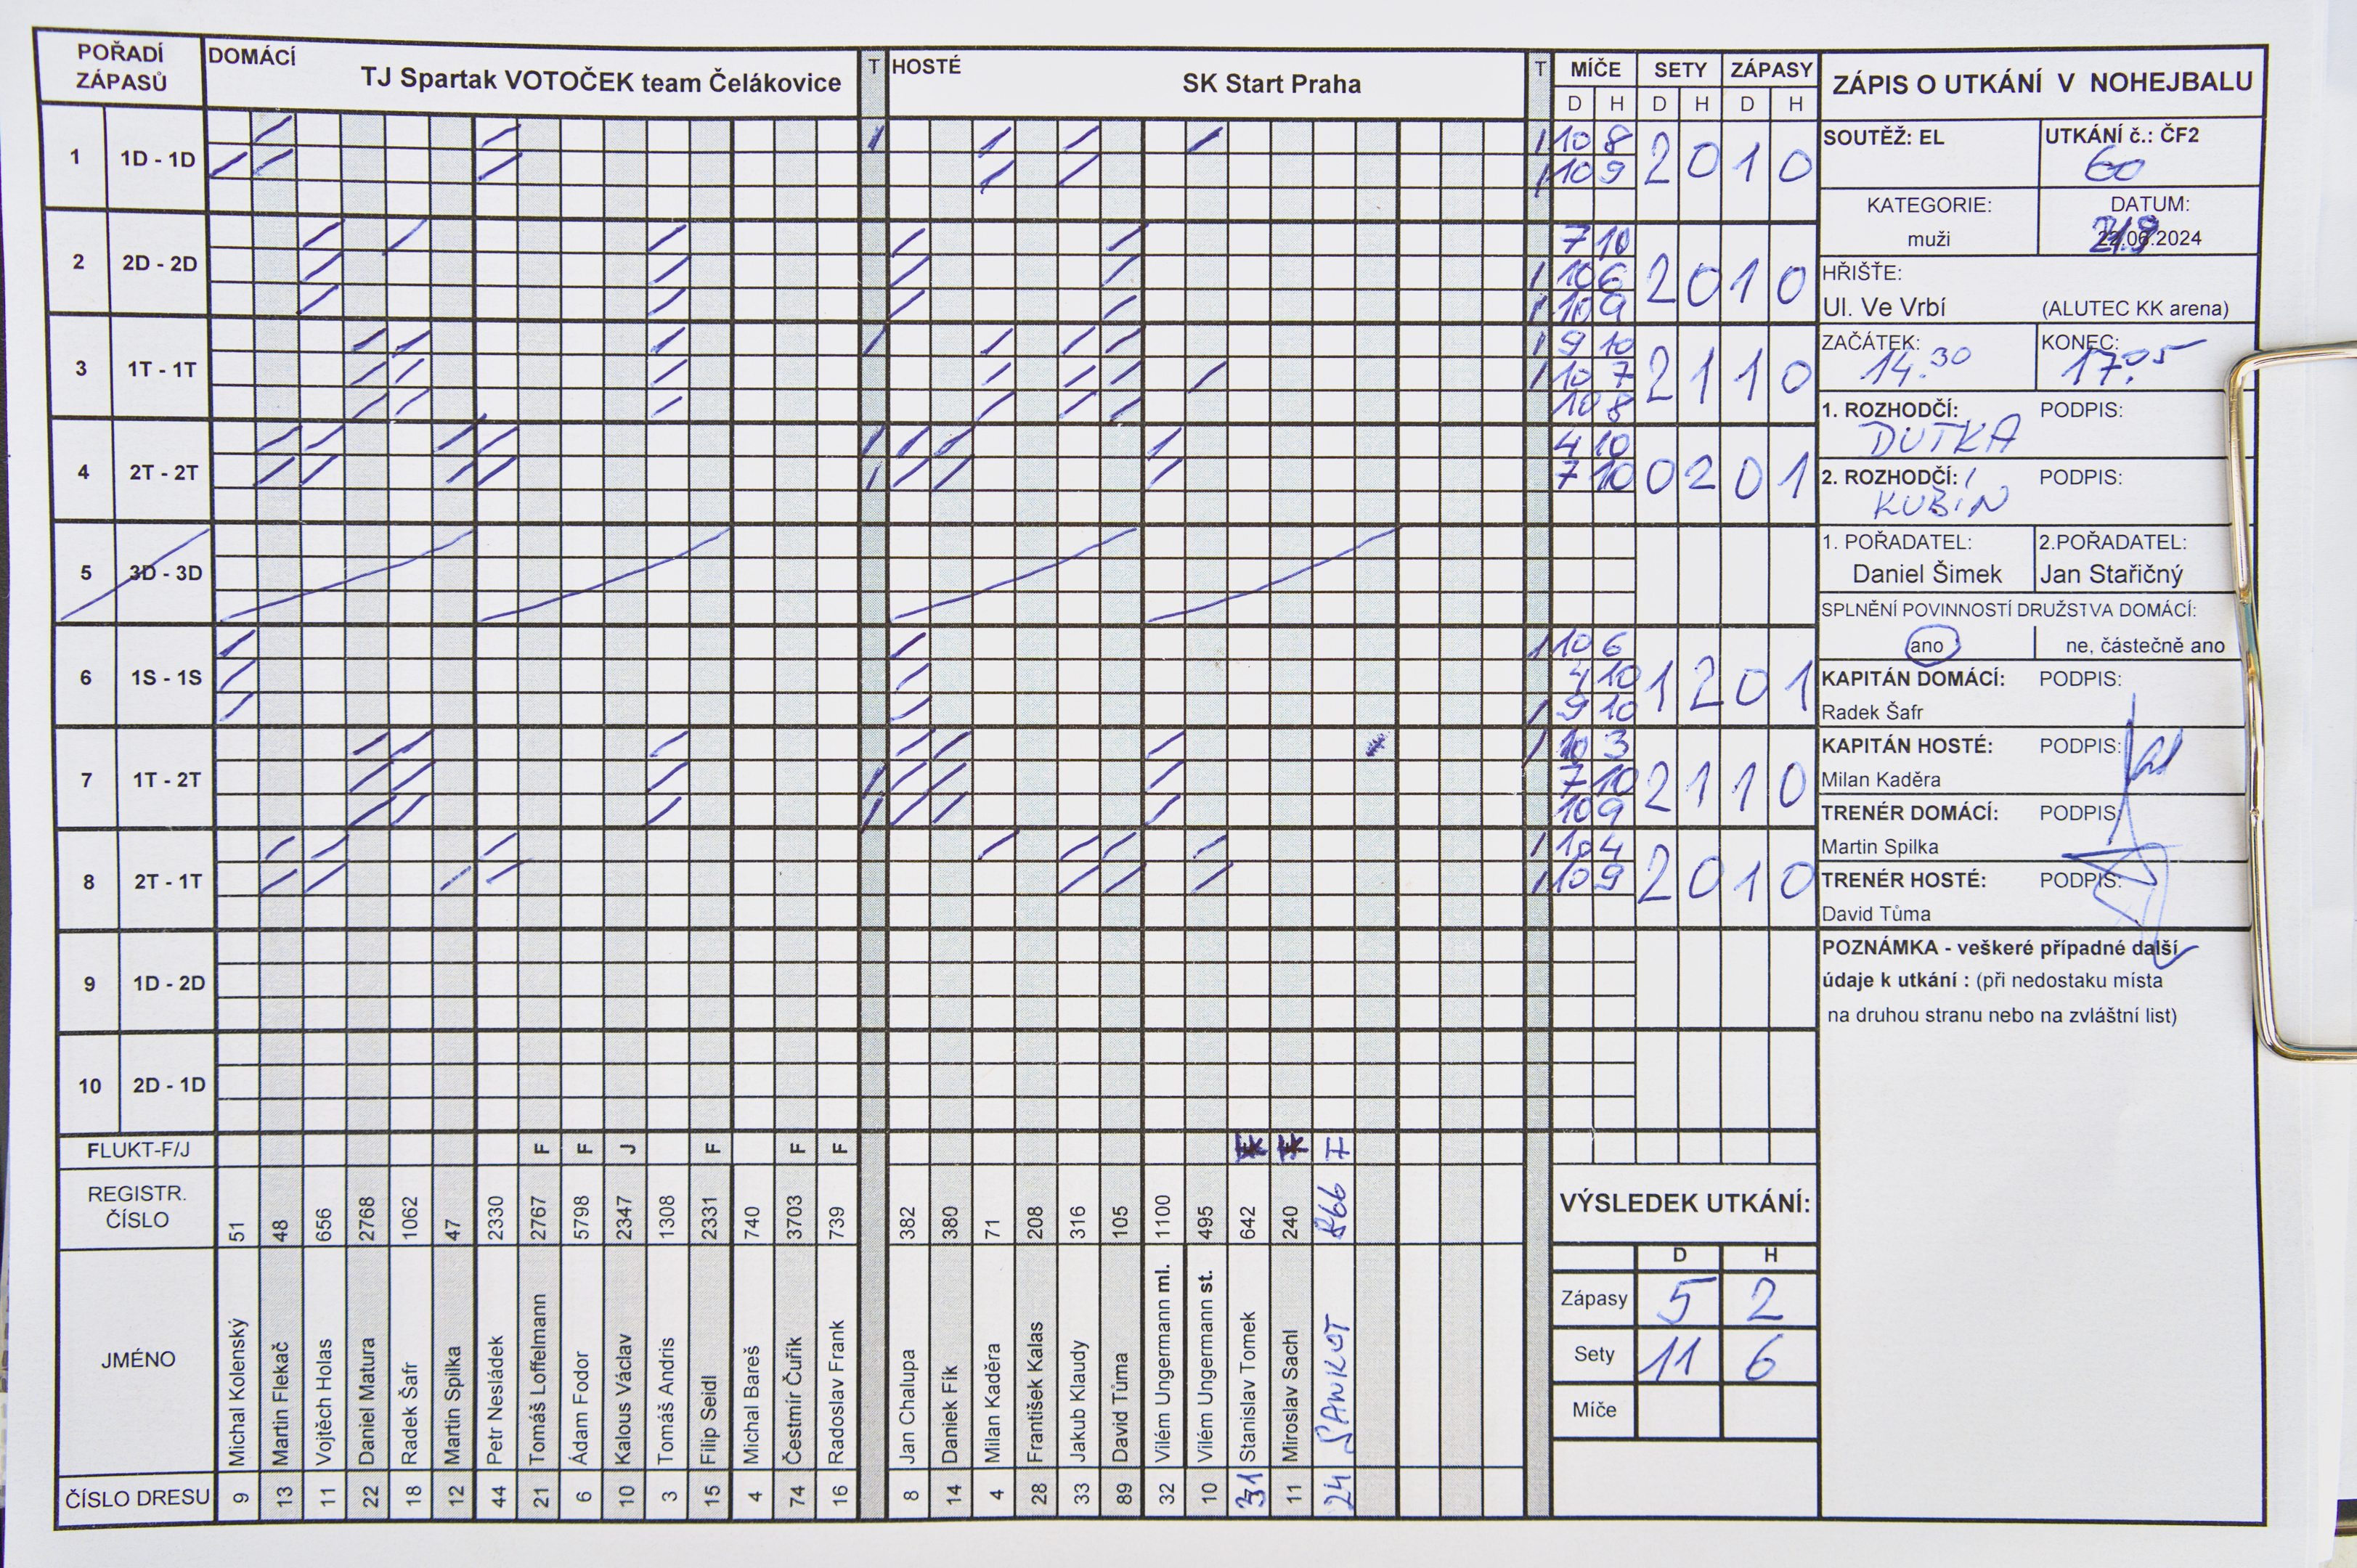 POŘADÍ ZÁPASŮ
DOMÁCÍ TJ Spartak VOTOČEK team Čelákovice T
HOSTÉ SK Start Praha T
MÍČE SETY ZÁPASY
D H D H D H
1 1D - 1D
10 8
10 9
2 0 1 0
2 2D - 2D
7 10
10 6
10 9
2 0 1 0
3 1T - 1T
9 10
10 7
10 8
2 1 1 0
4 2T - 2T
4 10
7 10
0 2 0 1
5 3D - 3D
6 1S - 1S
10 6
4 10
9 10
1 2 0 1
7 1T - 2T
10 3
7 10
10 9
2 1 1 0
8 2T - 1T
10 4
10 9
2 0 1 0
9 1D - 2D
10 2D - 1D
FLUKT-F/J F F J F F F F
REGISTR. ČÍSLO
51 48 656 2768 1062 47 2330 2767 5798 2347 1308 2331 740 3703 739
382 380 71 208 316 105 1100 495 642 240
JMÉNO
Michal Kolenský
Martin Flekač
Vojtěch Holas
Daniel Matura
Radek Šafr
Martin Spilka
Petr Nesládek
Tomáš Loffelmann
Ádam Fodor
Kalous Václav
Tomáš Andris
Filip Seidl
Michal Bareš
Čestmír Čuřík
Radoslav Frank
Jan Chalupa
Daniek Fík
Milan Kaděra
František Kalas
Jakub Klaudy
David Tůma
Vilém Ungermann ml.
Vilém Ungermann st.
Stanislav Tomek
Miroslav Sachl
ČÍSLO DRESU
9 13 11 22 18 12 44 21 6 10 3 15 4 74 16
8 14 4 28 33 89 32 10 31 11 24
ZÁPIS O UTKÁNÍ V NOHEJBALU
SOUTĚŽ: EL
UTKÁNÍ č.: ČF2
60
KATEGORIE:
muži
DATUM:
22.06.2024
HŘIŠTĚ:
Ul. Ve Vrbí (ALUTEC KK arena)
ZAČÁTEK:
14.30
KONEC:
17.05
1. ROZHODČÍ: PODPIS:
DUTKA
2. ROZHODČÍ: PODPIS:
KUBÍN
1. POŘADATEL:
Daniel Šimek
2.POŘADATEL:
Jan Stařičný
SPLNĚNÍ POVINNOSTÍ DRUŽSTVA DOMÁCÍ:
ano ne, částečně ano
KAPITÁN DOMÁCÍ: PODPIS:
Radek Šafr
KAPITÁN HOSTÉ: PODPIS:
Milan Kaděra
TRENÉR DOMÁCÍ: PODPIS:
Martin Spilka
TRENÉR HOSTÉ: PODPIS:
David Tůma
POZNÁMKA - veškeré případné další
údaje k utkání : (při nedostaku místa
na druhou stranu nebo na zvláštní list)
VÝSLEDEK UTKÁNÍ:
D H
Zápasy 5 2
Sety 11 6
Míče